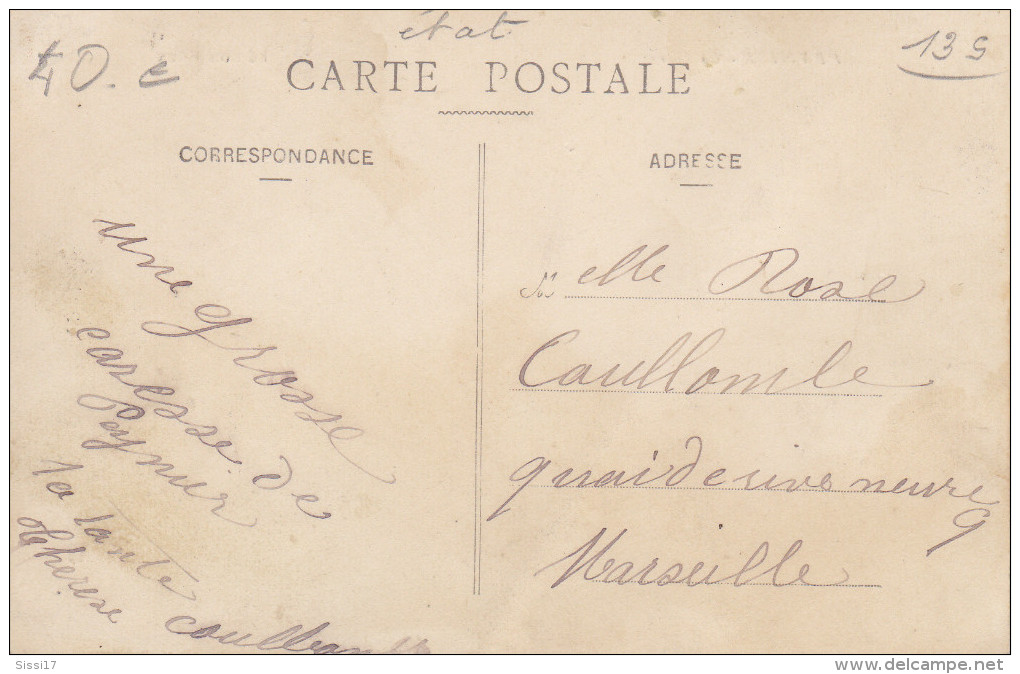 état
40. e
139
CARTE POSTALE
CORRESPONDANCE
une grosse
caresse de
Peynier
la tante
Thérèse
coullomb
ADRESSE
M elle Rose
Coullomb
quai de rive neuve
9
Marseille
Sissi17
www.delcampe.net